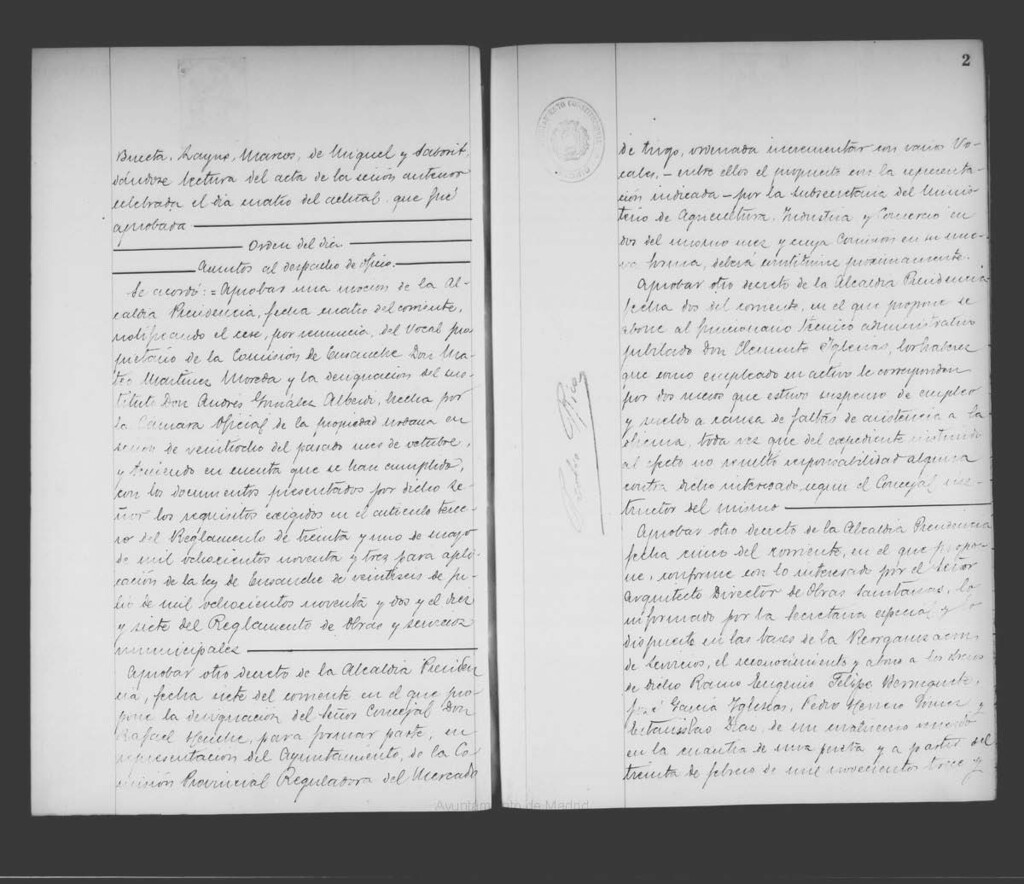 Buceta, Layús, Marcos, de Miguel y Saborit,
dándose lectura del acta de la sesión anterior
celebrada el día cuatro del actual que fué
aprobada
Orden del día
Asuntos al despacho de oficio.
Se acordó: = Aprobar una moción de la Al-
caldía Presidencia, fecha cuatro del corriente,
notificando el cese, por renuncia, del Vocal pro-
pietario de la Comisión de Ensanche Don Ma-
teo Martínez Moreda y la designación del sus-
tituto Don Andrés González Alberdi, hecha por
la Cámara Oficial de la propiedad urbana en
sesión de veintiocho del pasado mes de octubre,
y teniendo en cuenta que se han cumplido,
con los documentos presentados por dicho Se-
ñor los requisitos exigidos en el artículo terce-
ro del Reglamento de treinta y uno de mayo
de mil ochocientos noventa y tres para apli-
cación de la ley de Ensanche de veintiseis de ju-
lio de mil ochocientos noventa y dos y el diez
y siete del Reglamento de Obras y servicios
municipales
Aprobar otro decreto de la Alcaldía Presiden-
cia, fecha siete del corriente en el que pro-
pone la designación del Señor Concejal Don
Rafael Henche, para formar parte, en
representación del Ayuntamiento, de la Co-
misión Provincial Reguladora del Mercado
2
de trigo, ordenada incrementar con varios Vo-
cales, - entre ellos el propuesto con la representa-
ción indicada - por la Subsecretaría del Minis-
terio de Agricultura, Industria y Comercio en
dos del mismo mes y cuya Comisión en su nue-
va forma, deberá constituirse próximamente.
Aprobar otro decreto de la Alcaldía Presidencia
fecha dos del corriente, en el que propone se
abone al funcionario técnico administrativo
jubilado Don Clemente Iglesias, los haberes
que como empleado en activo le corresponden
por dos meses que estuvo suspenso de empleo
y sueldo a causa de faltas de asistencia a la
oficina, toda vez que del expediente instruido
al efecto no resulta responsabilidad alguna
contra dicho interesado, según el Concejal ins-
tructor del mismo
Aprobar otro decreto de la Alcaldía Presidencia
fecha cinco del corriente, en el que propo-
ne, conforme con lo interesado por el Señor
Arquitecto Director de Obras Sanitarias, lo
informado por la Secretaría especial y lo
dispuesto en las bases de la Reorganización
de Servicios, el reconocimiento y abono a los obreros
de dicho Ramo Eugenio Felipe Berruguete,
José García Iglesias, Pedro Herrero Gómez y
Estanislao Díaz, de un cuatrienio vencido
en la cuantía de una peseta y a partir del
treinta de febrero de mil novecientos trece y
Ayuntamiento de Madrid